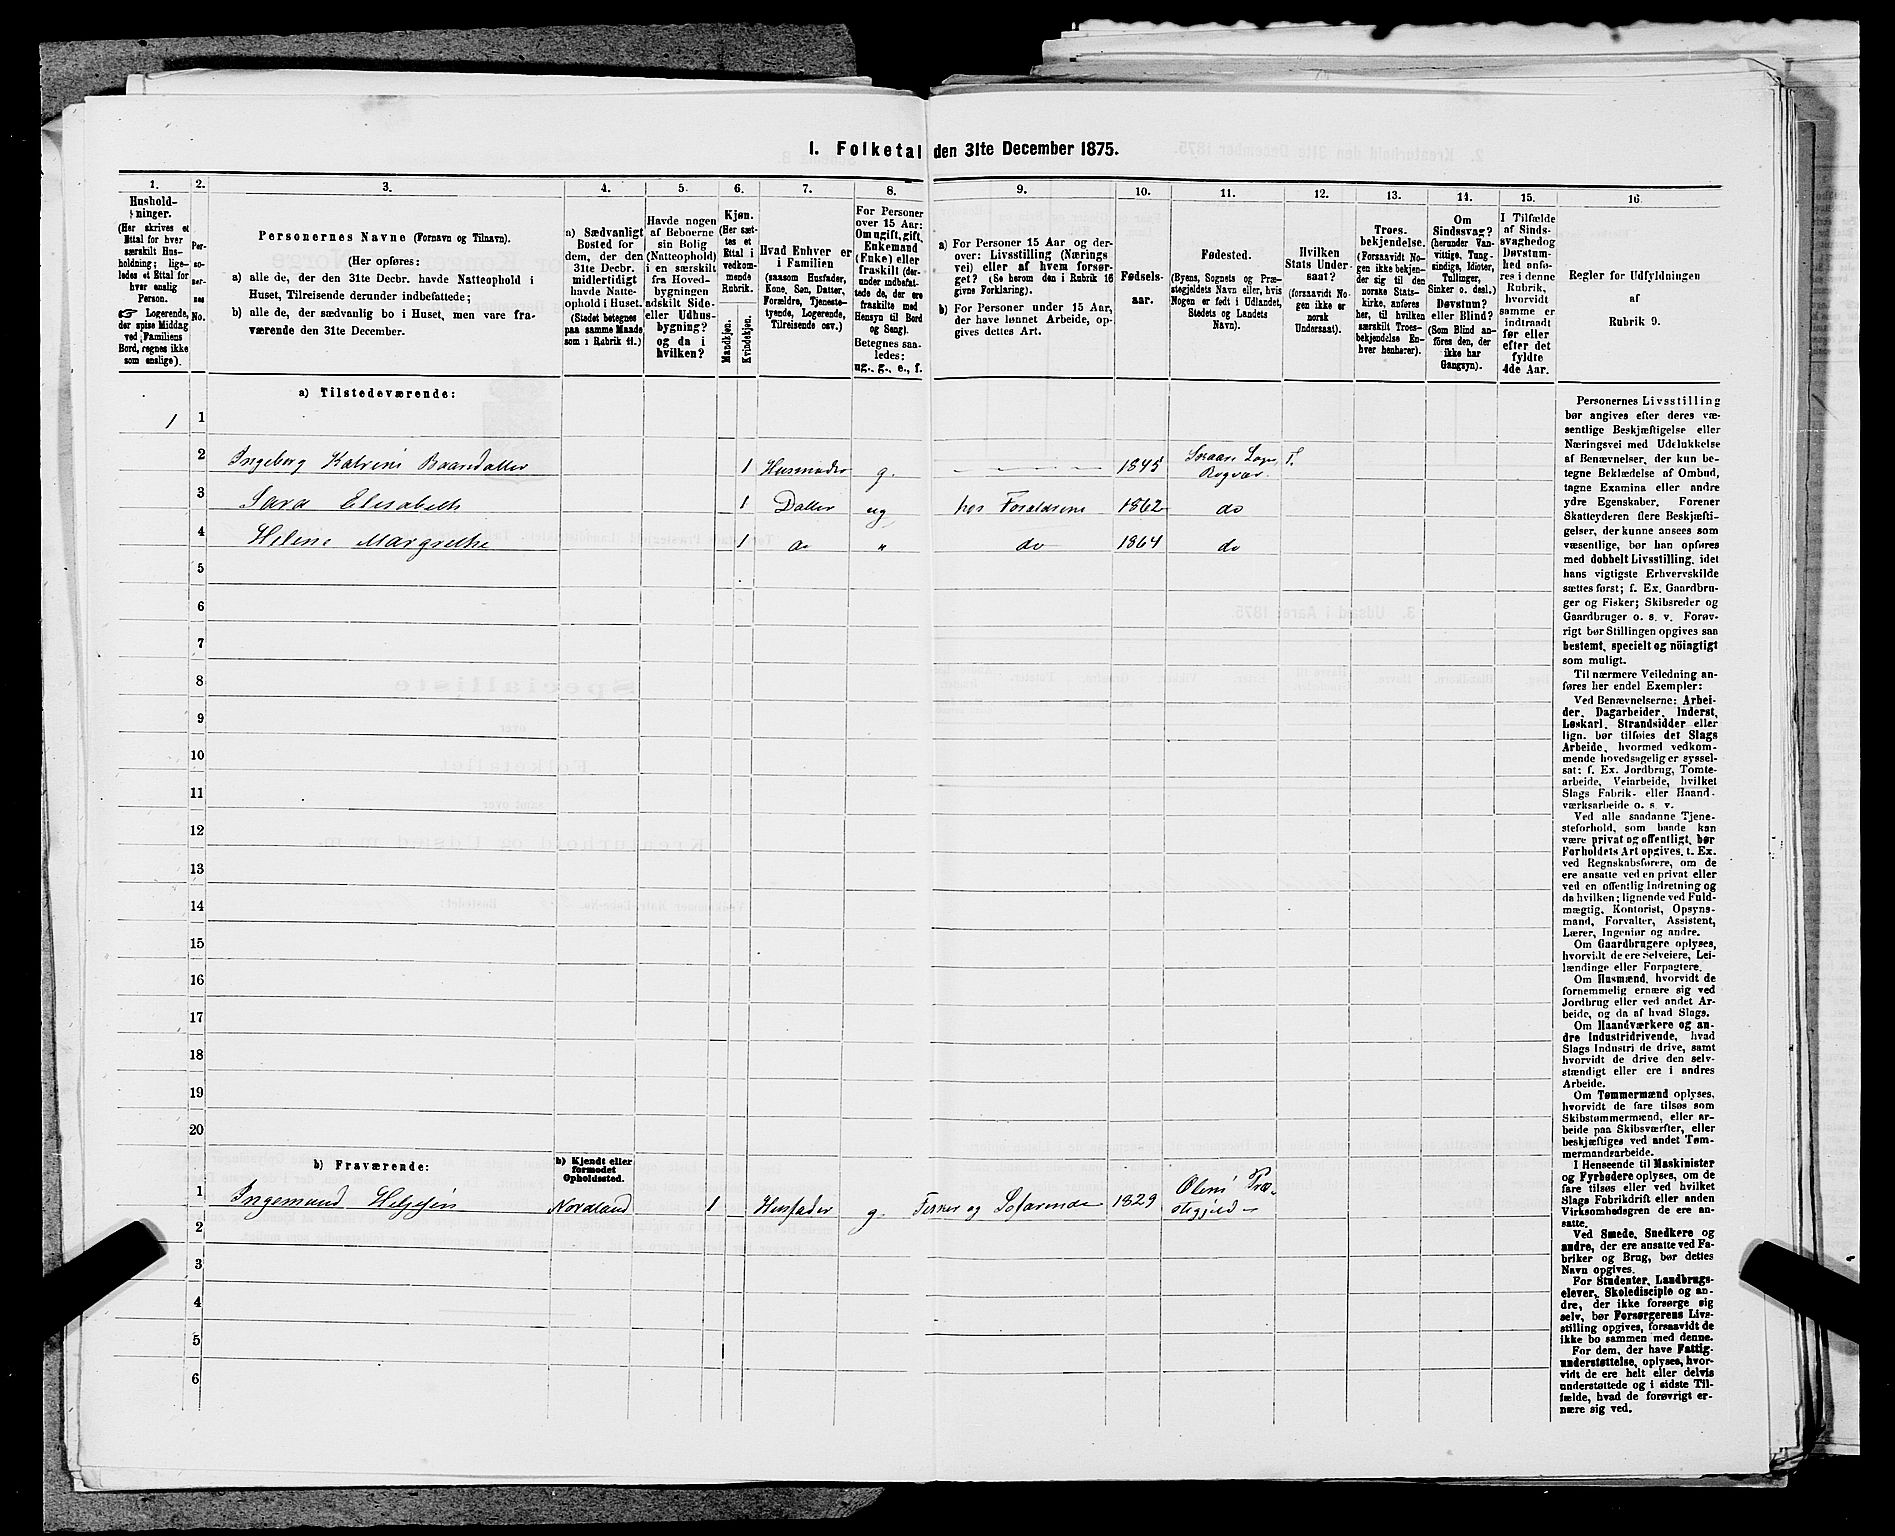 1. Folketal den 31te December 1875.
1. 2. 3. 4. 5. 6. 7. 8. 9. 10. 11. 12. 13. 14. 15. 16
Hushold-
ninger.
(Her skrives et
Ettal for hver
særskilt Hus-
holdning; lige-
ledes et Ettal for
hver enslig
Person.
☞ Logerende,
der spise Middag
ved Familiens
Bord, regnes ikke
som enslige).
Per-
so-
ner-
nes
No.
Personernes Navne (Fornavn og Tilnavn).
(Her opføres:
a) alle de, der den 31te Decbr. havde Natteophold i
Huset, Tilreisende derunder indbefattede;
b) alle de, der sædvanlig bo i Huset, men vare fra-
værende den 31te December.
a) Sædvanligt
Bosted for
dem, der den
31te Decbr.
midlertidigt
havde Natte-
ophold i Huset.
(Stedet betegnes
paa samme Maade
som i Rubrik 11.)
Havde nogen
af Beboerne
sin Bolig
(Natteophold)
i en særskilt
fra Hoved-
bygningen
adskilt Side-
eller Udhus-
bygning?
og da i
hvilken?
Kjøn.
(Her sæt-
tes et
Ettal i
vedkom-
mende
Rubrik.
Mandkjøn.
Kvindekjøn.
Hvad Enhver er
i Familien
(saasom Husfader,
Kone, Søn, Datter,
Forældre, Tjeneste-
tyende, Logerende,
Tilreisende osv.)
For Personer
over 15 Aar:
Om ugift, gift,
Enkemand
(Enke) eller
fraskilt (der-
under indbefat-
tede de, der ere
fraskilte med
Hensyn til Bord
og Seng).
Betegnes saa-
ledes:
ug., g., e., f.
a) For Personer 15 Aar og der-
over: Livsstilling (Nærings
vei) eller af hvem forsør-
get? (Se herom den i Rubrik 16
givne Forklaring).
b) For Personer under 15 Aar,
der have lønnet Arbeide, op-
gives dettes Art.
Fødsels-
aar.
Fødested.
(Byens, Sognets og Præ-
stegjeldets Navn eller, hvis
Nogen er født i Udlandet,
Stedets og Landets
Navn).
Hvilken
Stats Under-
saat?
(forsaavidt No
gen ikke er
norsk
Undersaat).
Troes-
bekjendelse.
(Forsaavidt No-
gen ikke bekjen-
der sig til den
norske Stats-
kirke, anføres
her, til hvilken
særskilt Troes-
bekjendelse En-
hver henhører).
Om
Sindssvag?
(herunder Van-
vittige, Tung-
sindige, Idioter,
Tullinger,
Sinker o. desl.)
Døvstum?
eller Blind?
(Som Blind an-
føres den, der
ikke har
Gangsyn).
I Tilfælde
af Sinds-
svaghedog
Døvstum-
hed anfø-
res i denne
Rubrik,
hvorvidt
samme er
indtraadt
før eller
efter det
fyldte
4de Aar.
Regler for Udfyldningen
af
Rubrik 9.
a) Tilstedeværende:
1 1
2 Ingeborg Katrine Baarsdatter 1 Husmoder g. 1845
3 Sara Elisabeth 1 Datter ug hos Foraldrene 1862 do
4 Helene Margrethe 1 do " do 1864 do
5
6
7
8
9
10
11
12
13
14
15
16
17
18
19
20
b) Fraværende:
b) Kjendt eller
formodet
Opholdssted.
1 Ingemund Nordland 1 Husfader g. Fisker og Sofarende 1829 Præ-
stegjeld
2
3
4
5
6
Personernes Livsstilling
bør angives efter deres væ-
sentlige Beskjæftigelse eller
Næringsvei med Udelukkelse
af Benævnelser, der kun be-
tegne Beklædelse af Ombud,
tagne Examina eller andre
ydre Egenskaber. Forener
Skatteyderen flere Beskjæfti-
gelser, der kunne ansees som
væsentlige, bør han opføres
med dobbelt Livsstilling, idet
hans vigtigste Erhvervskilde
sættes først; f. Ex. Gaardbru-
ger og Fisker; Skibsreder og
Gaardbruger o. s. v. Forøv-
rigt bør Stillingen opgives saa
bestemt, specielt og nöiagtigt
som muligt.
Til nærmere Veiledning an-
føres her endel Exempler:
Ved Benævnelserne: Arbei-
der, Dagarbeider, Inderst,
Løskarl, Strandsidder eller
lign. bør tilføies det Slags
Arbeide, hvormed vedkom-
mende hovedsagelig er syssel-
sat; f. Ex. Jordbrug, Tomte-
arbeide, Veiarbeide, hvilket
Slags Fabrik- eller Haand-
værksarbeide o. s. v.
Ved alle saadanne Tjene-
steforhold, som baade kan
være privat og offentligt, bør
Forholdets Art opgives, t. Ex.
ved Regnskabsførere, om de
ere ansatte ved en privat eller
ved en offentlig Indretning og
da hvilken; lignende ved Fuld-
mægtig, Kontorist, Opsyns-
mand, Forvalter, Assistent,
Lærer, Ingeniør og andre.
Om Gaardbrugere oplyses,
hvorvidt de ere Selveiere, Lei-
lændinge eller Forpagtere.
Om Husmænd, hvorvidt de
fornemmelig ernære sig ved
Jordbrug eller ved andet Ar-
beide, og da af hvad Slags.
Om Haandværkere og an-
dre Industridrivende, hvad
Slags Industri de drive, samt
hvorvidt de drive den selv-
stændigt eller ere i andres
Arbeide.
Om Tømmermænd oplyses,
hvorvidt de fare tilsøs som
Skibstømmermænd, eller ar-
beide paa Skibsværfter, eller
beskjæftiges ved andet Tøm-
mermandsarbeide.
I Henseende til Maskinister
og Fyrbødere oplyses, om de
fare tilsøs eller ved hvilket
Slags Fabrikdrift eller anden
Virksomhedsgren de ere an-
satte.
Ved Smede, Snedkere og
andre, der ere ansatte ved Fa-
briker og Brug, bør dettes
Navn opgives.
For Studenter, Landbrugs-
elever, Skoledisciple og an-
dre, der ikke forsørge sig
selv, bør Forsørgerens Livs-
stilling opgives, forsaavidt de
ikke bo sammen med denne.
For dem, der have Fattig-
understøttelse, oplyses, hvor-
vidt de ere helt eller delvis
understøttede og i sidste Til-
fælde, hvad de forøvrigt er-
nære sig ved.